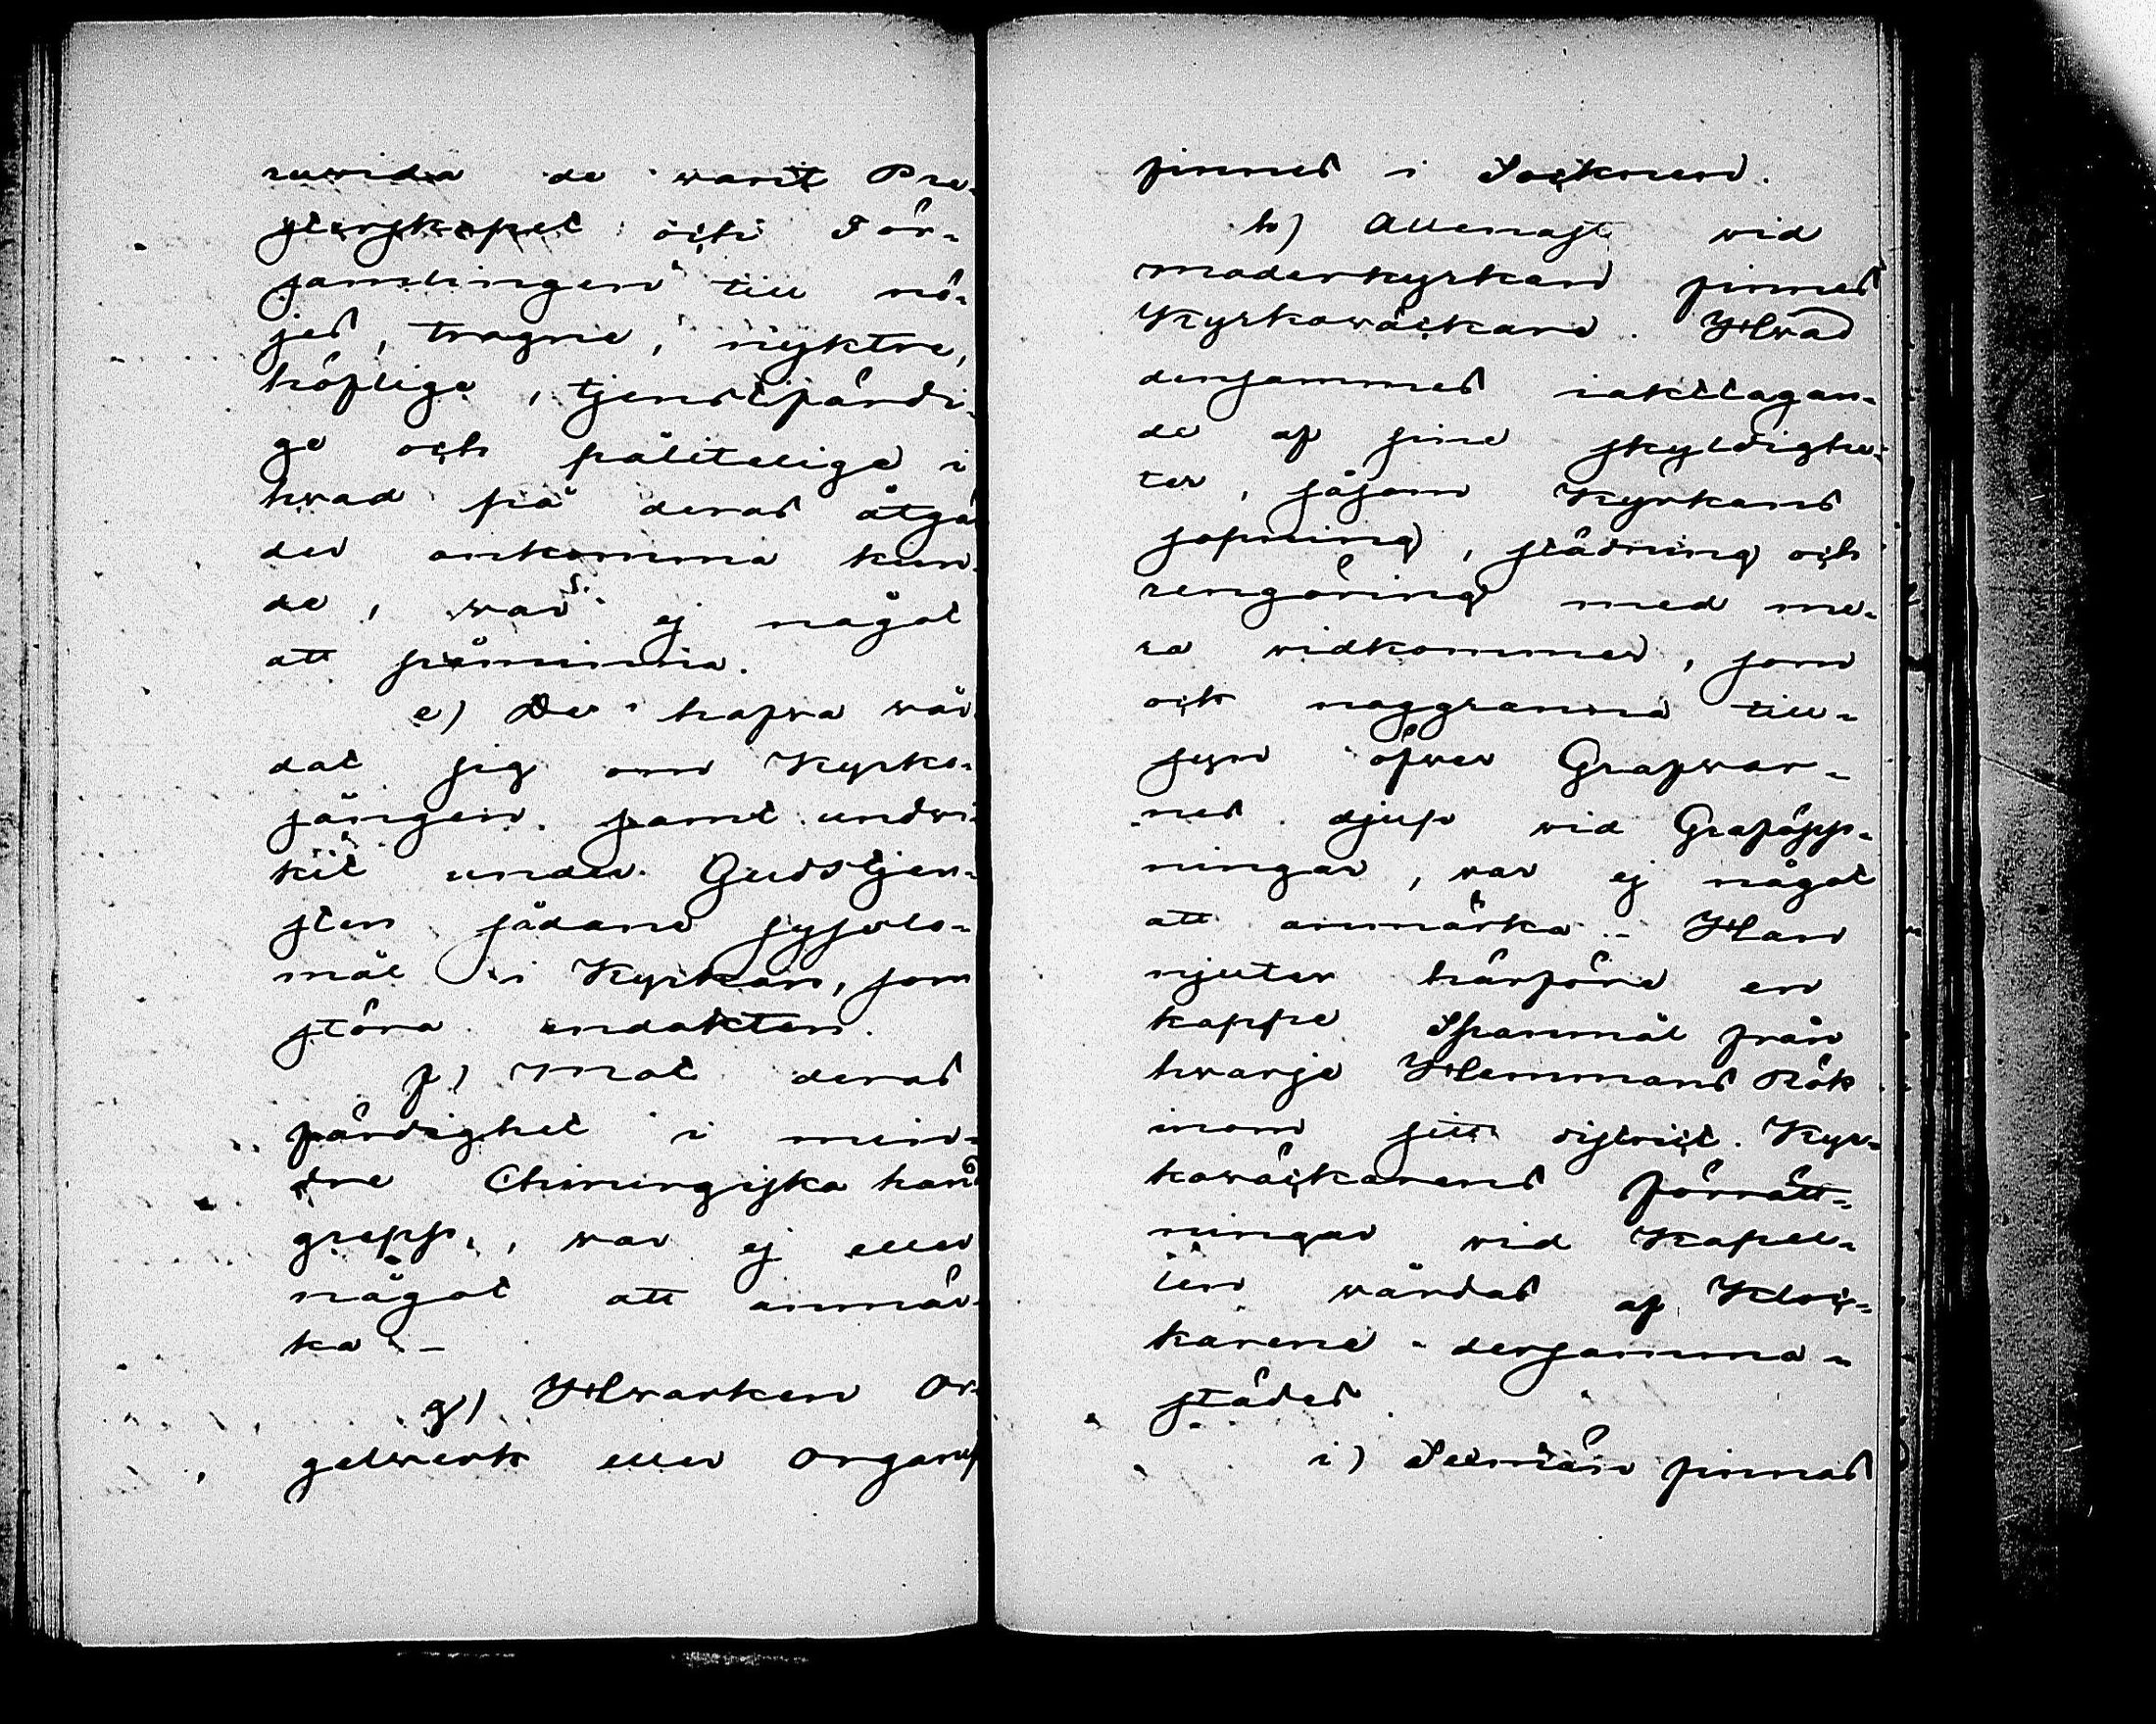 ruvida de varit Pre-
sterskapet och För-
samlingen till nö-
jes, trogne, nyktre,
höflige, tjenstfärdi-
ge och pålitelige i
hvad på deras åtgä
der ankomma kun-
de, var ej något
att påminna.
e) De hafva vår
dat sig om Kyrko-
sången samt undvi-
kit under Gudstjen-
sten sådane sysslo-
mål i Kyrkan, som
störa andakten.
f) Mot deras
färdighet i min-
dre Chirurgiska hand
grepp, var ej eller
något att anmär-
ka. -
g) Hvarken Or-
gelverk eller Organist
finnes i Socknen.
h) Allenast vid
moderkyrkan finnes
Kyrkoväckare. Hvad
densammes iakttagan-
de af sine skyldighe-
ter, såsom Kyrkans
sopning, städning och
rengöring med me-
ra vidkommer, som
ock noggranna till-
syn öfver Grafvar-
nes djup vid Graföpp-
ningar, var ej något
att anmärka. - Han
njuter härföre en
kappe Spanmål från
hvarje Hemmans Rök
inom sitt district. Kyr-
koväckarens förrätt-
ningar vid Kapel-
len vårdas af Kloc-
karene dersamma-
städes.
i) Seminär finnas